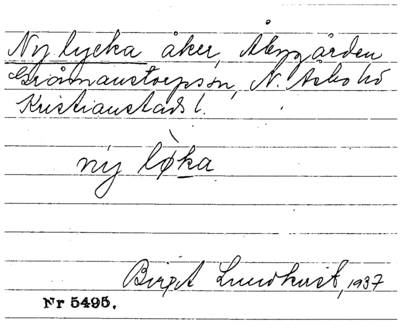 Ny lycka åker, Åbygården
Gråmanstorpssn, N. Åsbo hd
Kristianstads l.
ny lø̀ka
Birgit Lundkvist, 1937
Nr 5495.